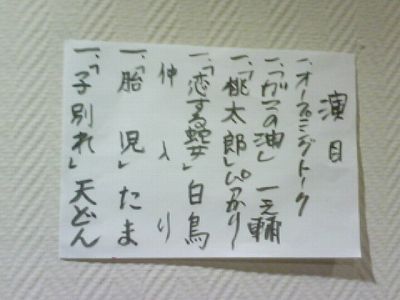 演目
一、オープニングトーク
一、「がまの油」 一之輔
一、「桃太郎」ぴっかり
一、「恋する蛇女」 白鳥
仲入り
一、「胎児」 たま
一、「子別れ」 天どん